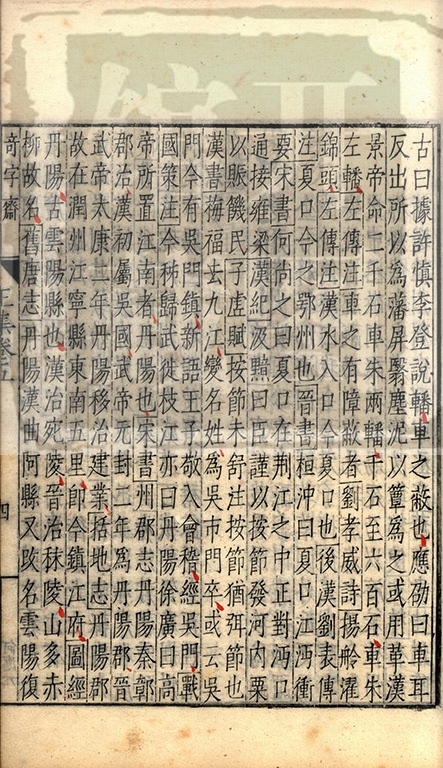 古曰據許慎李登說轓車之蔽也應劭曰車耳
反出所以為藩屏翳塵泥以簟為之或用革漢
景帝命二千石車朱兩轓千石至六百石車朱
左轓左傳注車之有障蔽者劉孝威詩揚舲濯
錦頭左傳注漢水入口今夏口也後漢劉表傳
注夏口今之鄂州也晉書桓沖曰夏口江沔衝
要宋書何尚之曰夏口在荆江之中正對沔口
通接雍梁漢紀汲黯曰臣謹以按節發河內粟
以賑饑民子虛賦按節未舒注按節猶弭節也
漢書梅福去九江變名姓為吳市門卒或云吳
門今有吳門鎮新語王子敬入會稽經吳門戰
國策注今秭歸武徙枝江亦曰丹陽徐廣曰高
帝所置江南者丹陽也宋書州郡志丹陽秦鄣
郡治漢初屬吳國武帝元封二年為丹陽郡晉
武帝太康二年丹陽移治建業括地志丹陽郡
故在潤州江寧縣東南五里即今鎮江府圖經
丹陽古雲陽縣也漢治宛陵晉治秣陵山多赤
柳故名舊唐志丹陽漢曲阿縣又改名雲陽復
奇字齋 王集卷五 四